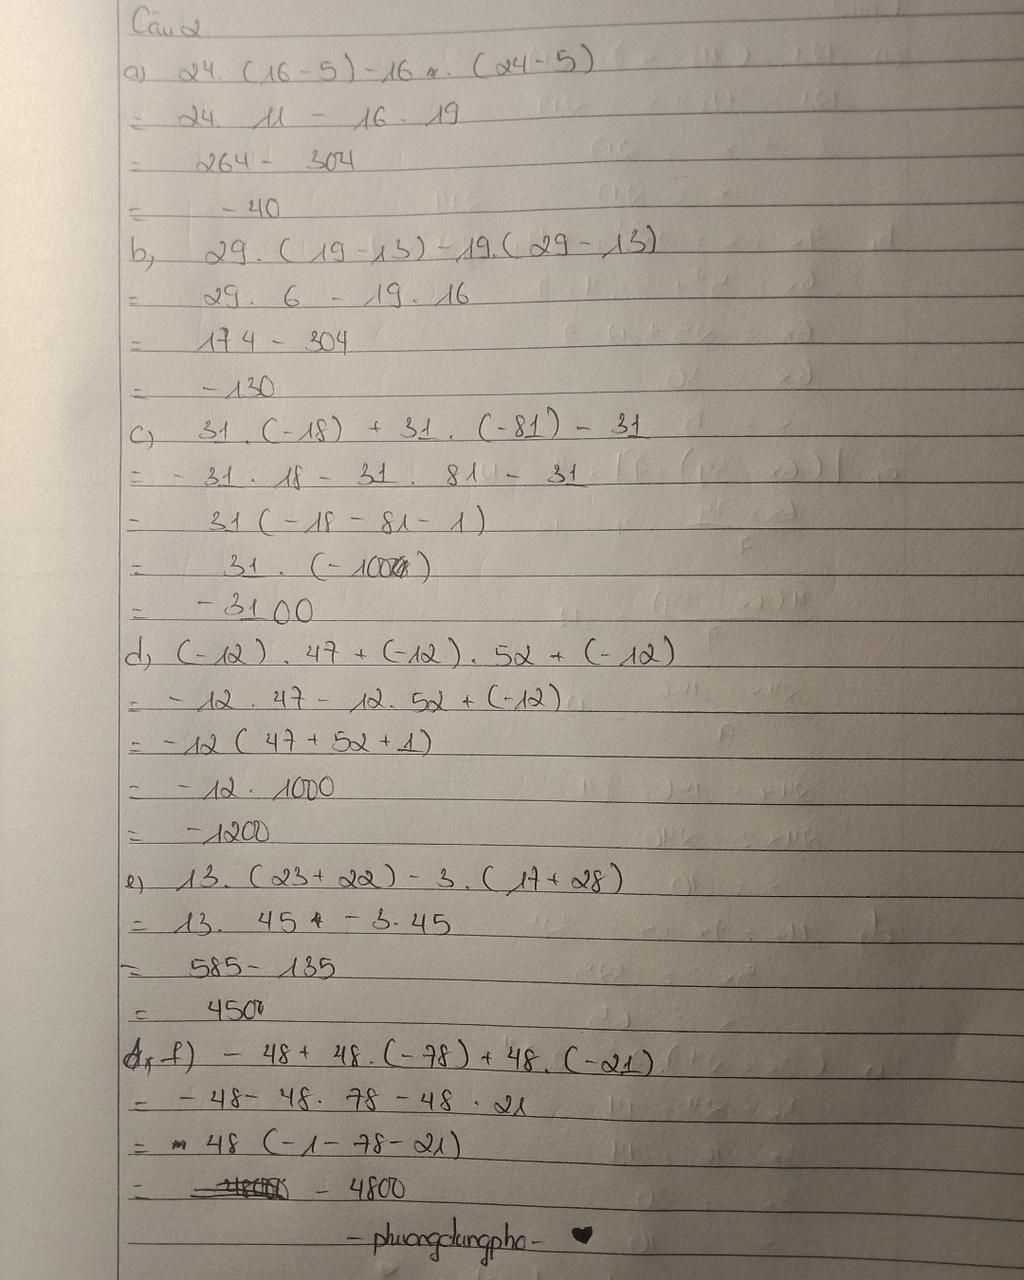 Câu 2.
a) 24. (16 - 5) - 16 . (24 - 5)
= 24. 11 - 16 . 19
= 264 - 304
= - 40
b, 29. (19 - 13) - 19. (29 - 13)
= 29. 6 - 19. 16
= 174 - 304
= - 130
c, 31 . (-18) + 31 . (-81) - 31
= - 31 . 18 - 31 . 81 - 31
= 31 ( - 18 - 81 - 1 )
= 31 . (- 100)
= - 3100
d, (-12) . 47 + (-12) . 52 + (-12)
= - 12 . 47 - 12. 52 + (-12)
= - 12 ( 47 + 52 + 1)
= - 12. 1000
= - 1200
e, 13. (23 + 22) - 3. (17 + 28)
= 13. 45 - 3. 45
= 585 - 135
= 450
f) - 48 + 48. (-78) + 48. (-21)
= - 48 - 48. 78 - 48 . 21
= 48 (-1 - 78 - 21)
= - 4800
- phuongdungpho - ♥